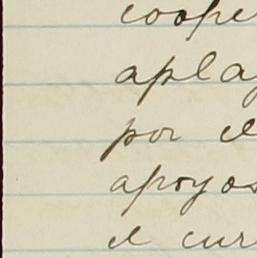 coope
apla
por el
apoyos
el cur